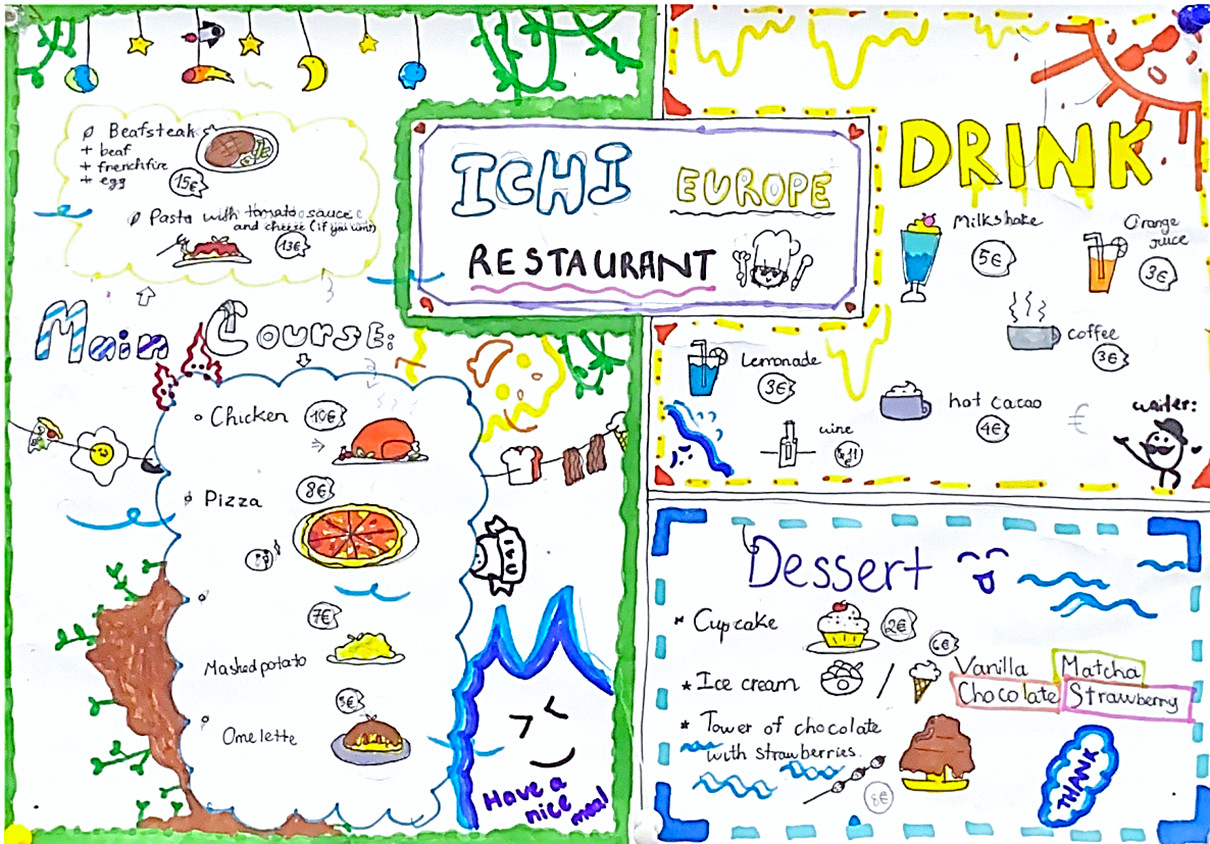 Beafsteak
+ beaf
+ frenchfire
+ egg
15€
Pasta with tomato sauce
and cheese (if you want)
13€
Main Course:
Chicken 10€
8€
Pizza
7€
Mashed potato
5€
Omelette
Have a
nice
meal
ICHI EUROPE
RESTAURANT
DRINK
Milkshake
5€
Orange
juice
3€
coffee
3€
Lemonade
3€
hot cacao
4€
wine
€
waiter:
Dessert
* Cupcake 2€
6€
* Ice cream /
Vanilla Matcha
Chocolate Strawberry
* Tower of chocolate
with strawberries.
8€
THANK